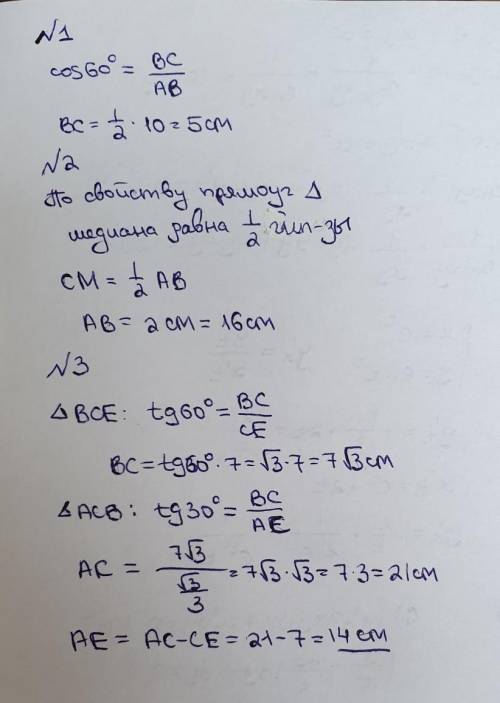 №1
cos60° = BC/AB
BC = 1/2 · 10 = 5 см
№2
По свойству прямоуг Δ
медиана равна 1/2 гип-зы
CM = 1/2 AB
AB = 2 CM = 16 см
№3
Δ BCE: tg60° = BC/CE
BC = tg60° · 7 = √3 · 7 = 7√3 см
Δ ACB: tg30° = BC/AE
AC = 7√3/(√3/3) = 7√3 · √3 = 7·3 = 21 см
AE = AC – CE = 21 – 7 = 14 см